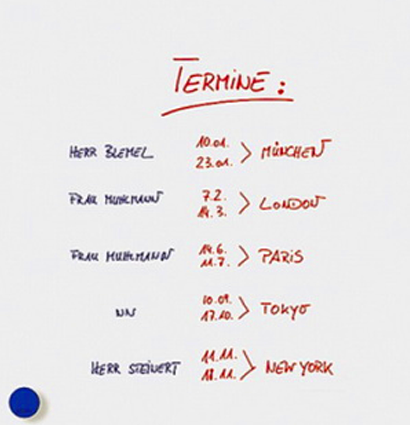 TERMINE:
HERR BLEMEL 10.01. 23.01. > MÜNCHEN
FRAU MUHLMANN 7.2. 14.3. > LONDON
FRAU MUHLMANN 14.6. 11.7. > PARIS
NN 10.09. 17.10. > TOKYO
HERR STEINERT 11.11. 18.11. > NEW YORK